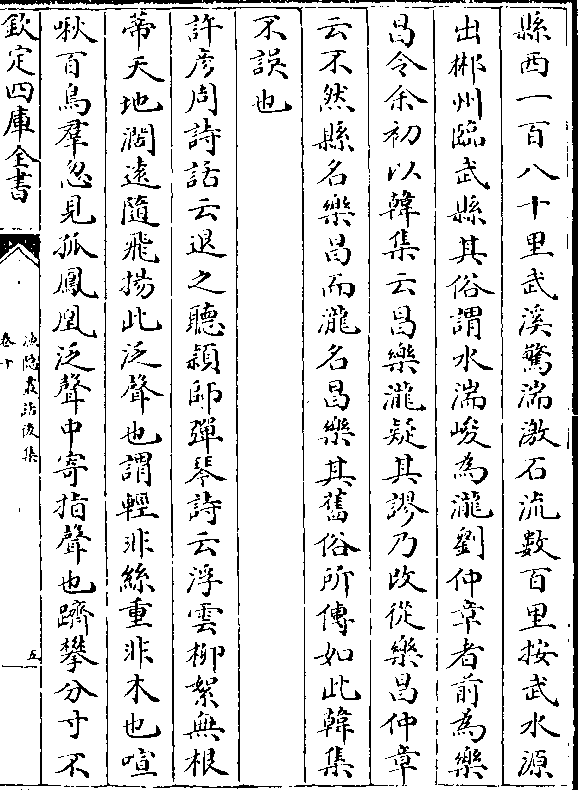 縣西一百八十里武溪驚湍激石流數百里按武水源
出郴州臨武縣其俗謂水湍峻為瀧劉仲章者前為樂
昌令余初以韓集云昌樂瀧疑其謬乃改從樂昌仲章
云不然縣名樂昌而瀧名昌樂其舊俗所傳如此韓集
不誤也
許彦周詩話云退之聽頴師彈琴詩云浮雲柳絮無根
蒂天地濶遠隨飛揚此泛聲也謂輕非絲重非木也喧
啾百鳥羣忽見孤鳳凰泛聲中寄指聲也躋攀分寸不
欽定四庫全書
漁隱叢話後集
卷十
五